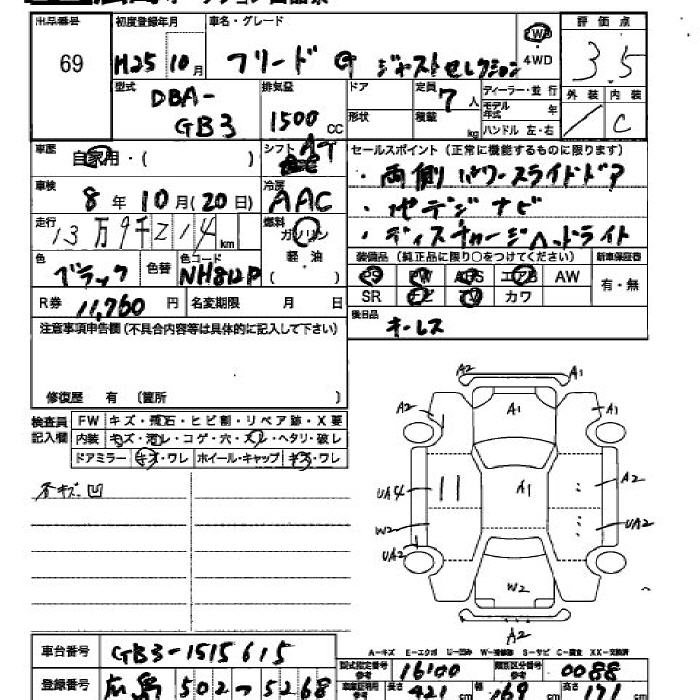 出品番号 初度登録年月 車名・グレード 評価点
69 H25年10月 フリード G ジャストセレクション 4WD 3.5
型式 排気量 ドア 定員 ディーラー・並行 外装 内装
DBA-GB3 1500CC 形状 7人 モデル年式 年 C
積載 kg ハンドル 左・右
車歴 自家用・( ) シフト AT セールスポイント(正常に機能するものに限ります)
車検 8年10月(20日) 冷房 AAC ・両側パワースライドドア
走行 13万9千214km 燃料 ガソリン ・地デジナビ
軽油 ( ) ・ディスチャージヘッドライト
色 ブラック 色替 色コード NH812P 装備品(純正品に限り○をつけてください) 新車保証書
PS PW ABS エアB AW 有・無
R券 11,760円 名変期限 月 日 SR ナビ TV カワ
注意事項申告欄(不具合内容等は具体的に記入して下さい) 後日品 オーレス
修復歴 有 〔箇所 〕
検査員記入欄 FW キズ・飛石・ヒビ割・リペア跡・X要
内装 キズ・汚レ・コゲ・穴・スレ・ヘタリ・破レ
ドアミラー キズ・ワレ ホイール・キャップ キズ・ワレ
各キズ、凹
A2 A1
A2 A1 A2
UA4 A1 A2
W2 UA2
UA2 W2
A2
A-キズ E-エクボ U-凹み W-補修跡 S-サビ C-腐食 XX-交換済
車台番号 GB3-1515615 型式指定番号 参考 16100 類別区分番号 参考 0088
登録番号 広島 502 5268 長さ 421 cm 幅 169 cm 高さ 171 cm